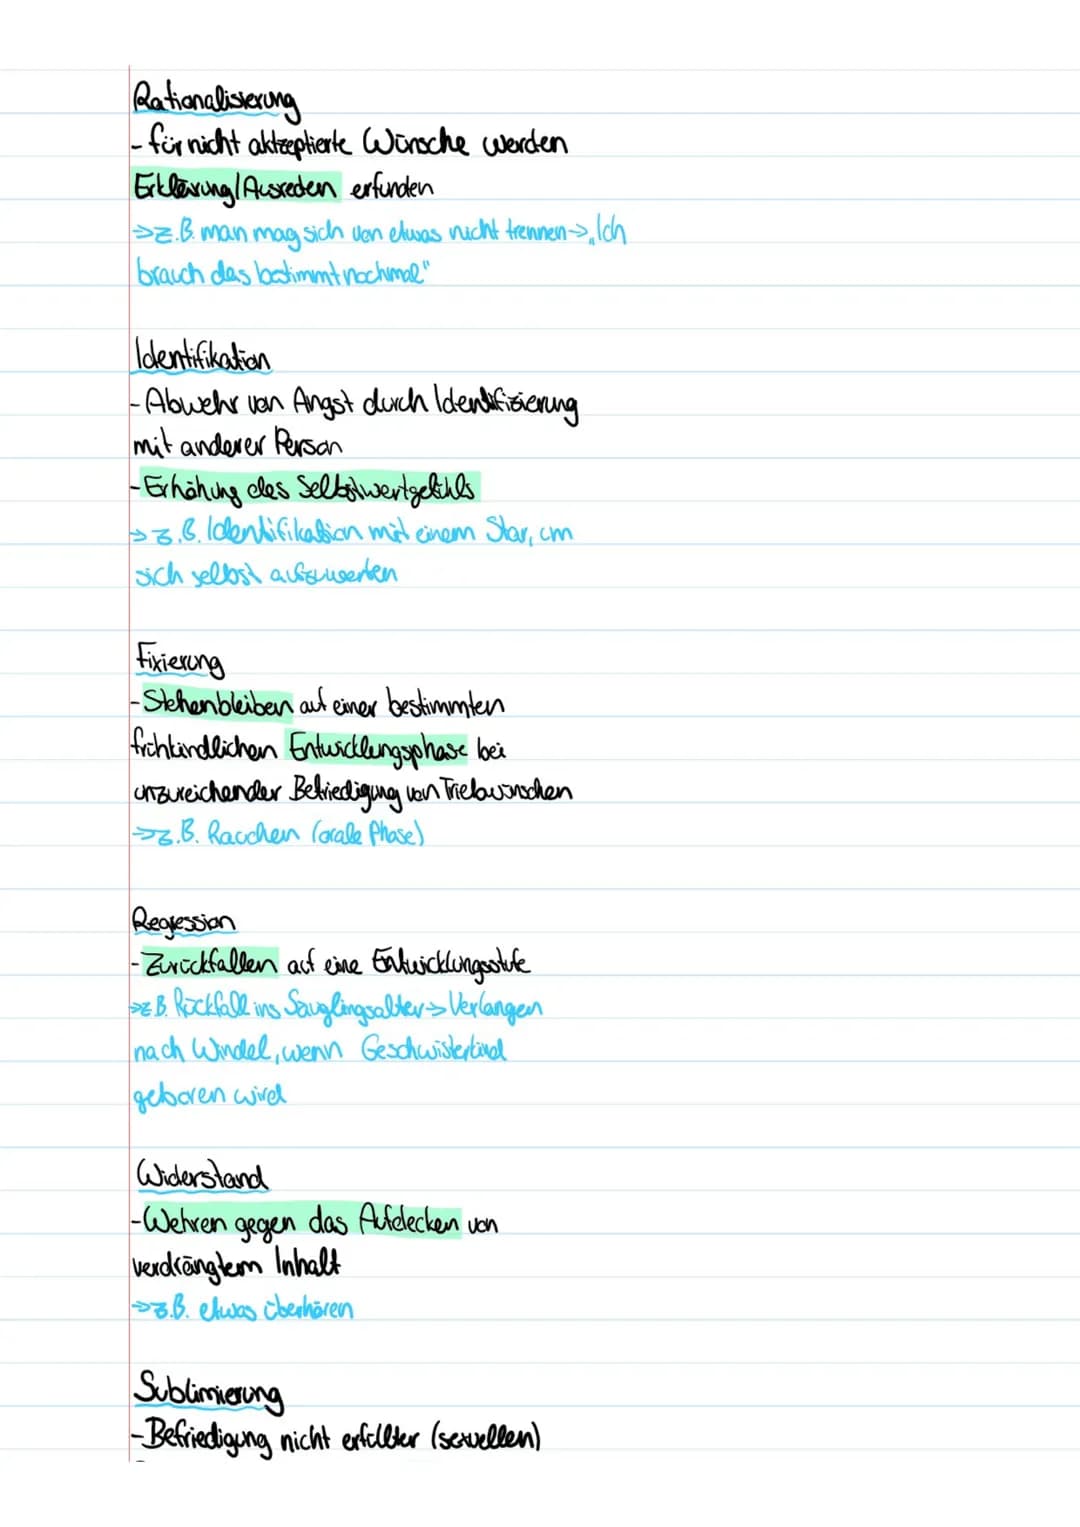 Rationalisierung
- für nicht aktzeptierte Wünsche werden
Erklärung/Ausreden erfunden
→z.B. man mag sich von etwas nicht trennen→„Ich
brauch das bestimmt nochmal"
Identifikation
- Abwehr von Angst durch Identifizierung
mit anderer Person
- Erhöhung des Selbstwertgefühls
→ z.B. Identifikation mit einem Star, um
sich selbst aufzuwerten
Fixierung
- Stehenbleiben auf einer bestimmten
frühkindlichen Entwicklungsphase bei
unzureichender Befriedigung von Triebwünschen
→z.B. Rauchen (orale Phase)
Regression
- Zurückfallen auf eine Entwicklungsstufe
→z.B. Rückfall ins Säuglingsalter→Verlangen
nach Windel, wenn Geschwisterkind
geboren wird
Widerstand
- Wehren gegen das Aufdecken von
verdrängtem Inhalt
→z.B. etwas überhören
Sublimierung
- Befriedigung nicht erfüllter (sexuellen)